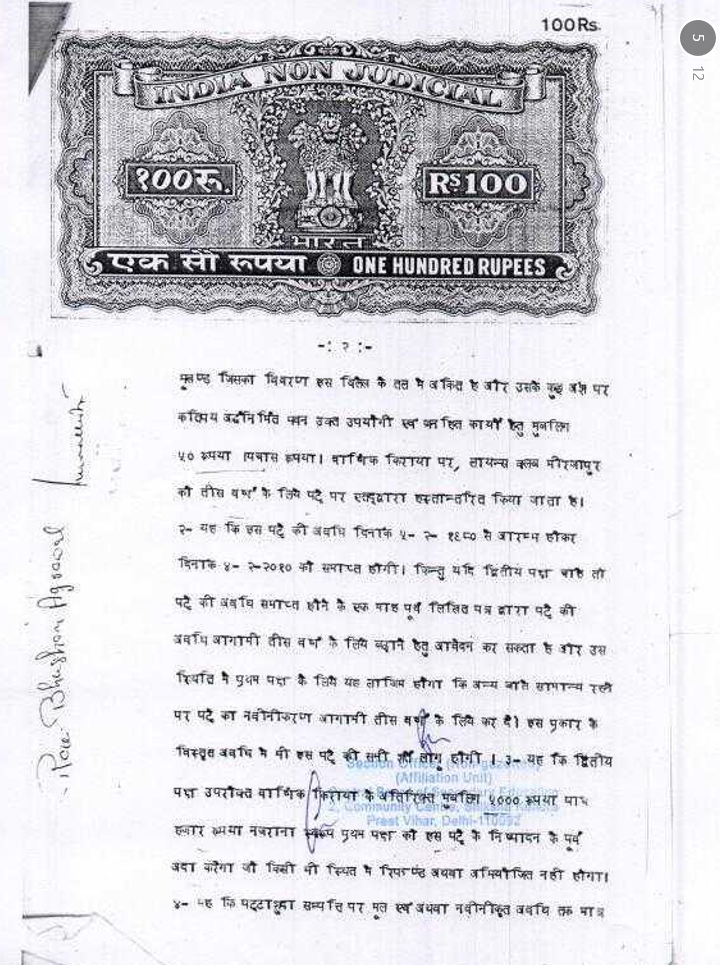 100Rs.
5
12
INDIA NON JUDICIAL
१००रू.
RS 100
भारत
एक सौ रुपया ONE HUNDRED RUPEES
-: २ :-
भूखण्ड जिसका विवरण इस विलेख के तल मे अंकित है और उसके कुछ अंश पर
कतिपय अर्द्धनिर्मित भवन उक्त उपयोगी एवं जनहित कार्यों हेतु मुबलिग
५० रूपया ।पचास रूपया। वार्षिक किराया पर, लायन्स क्लब मीरजापुर
को तीस वर्ष के लिये पट्टे पर एतद्द्वारा हस्तान्तरित किया जाता है।
२- यह कि इस पट्टे की अवधि दिनांक ५- २- १९८० से आरम्भ होकर
दिनांक ४- २-२०१० को समाप्त होगी। किन्तु यदि द्वितीय पक्ष चाहे तो
पट्टे की अवधि समाप्त होने के एक माह पूर्व लिखित पत्र द्वारा पट्टे की
अवधि आगामी तीस वर्ष के लिये बढ़ाने हेतु आवेदन कर सकता है और उस
स्थिति मे प्रथम पक्ष के लिये यह लाजिम होगा कि अन्य बातें सामान्य रहने
पर पट्टे का नवीनीकरण आगामी तीस वर्षों के लिये कर दे। इस प्रकार के
विस्तृत अवधि मे भी इस पट्टे की सभी शर्तें लागू होंगी । ३- यह कि द्वितीय
पक्ष उपरोक्त वार्षिक किराया के अतिरिक्त मुबलिग ५००० रूपया पांच
हजार रूपया नजराना स्वरूप प्रथम पक्ष को इस पट्टे के निष्पादन के पूर्व
अदा करेगा जो किसी भी स्थिति मे रिफण्ड अथवा अभियोजित नहीं होगा।
४- यह कि पट्टाशुदा सम्पत्ति पर मूल एवं अथवा नवीनीकृत अवधि तक मात्र
Section Officer
(Affiliation Unit)
Board of Secondary Education
2, Community Centre,
Preet Vihar, Delhi-110092
Bhushan Agrawal